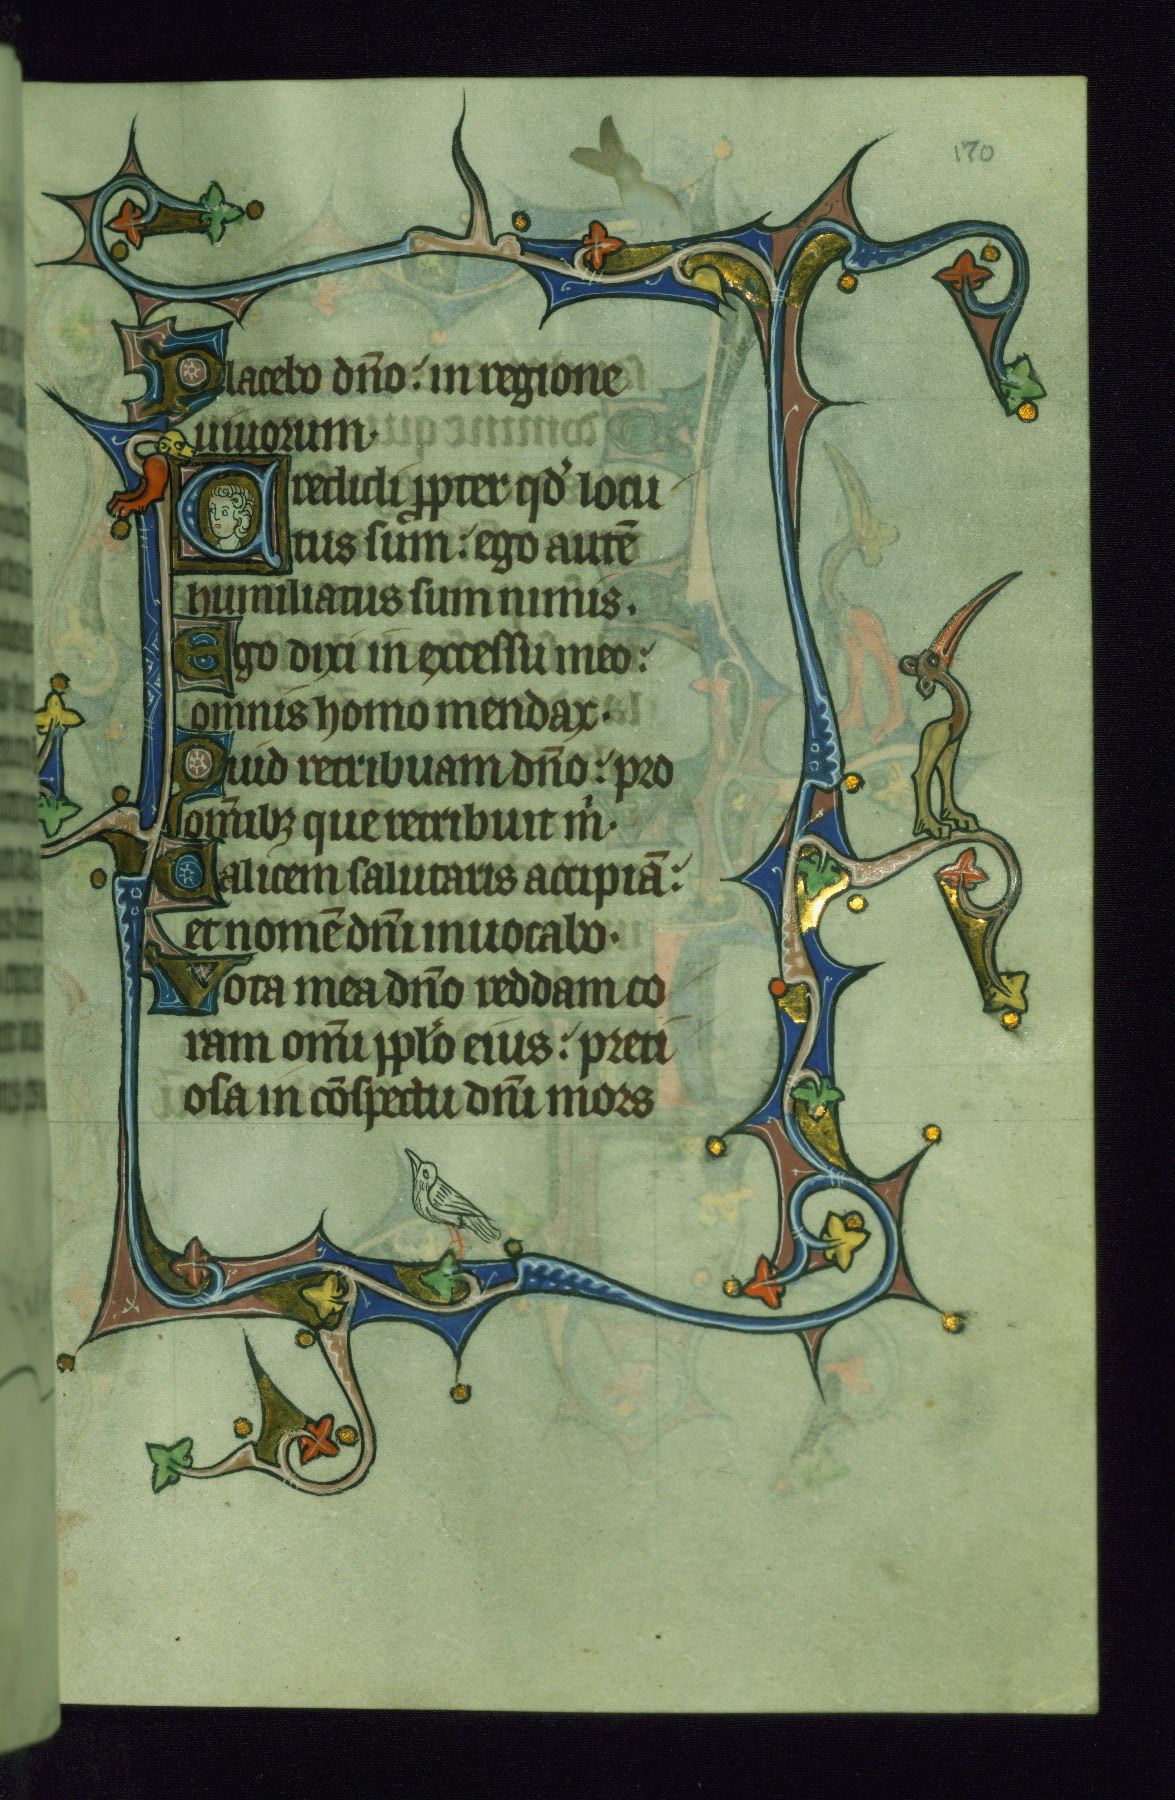 170
Placebo dn̄o: in regione
uiuorum·
Credidi ꝓpter qd̓ locu
tus sum: ego autē
humiliatus sum nimis·
Ego dixi in excessu meo:
omnis homo mendax·
Quid retribuam dn̄o: pro
om̄ibꝫ que retribuit m̓·
Calicem salutaris accipiā:
et nomē dn̄i inuocabo·
Vota mea dn̄o reddam co
ram om̄i ppl̓o eius: preti
osa in cōspectu dn̄i mors